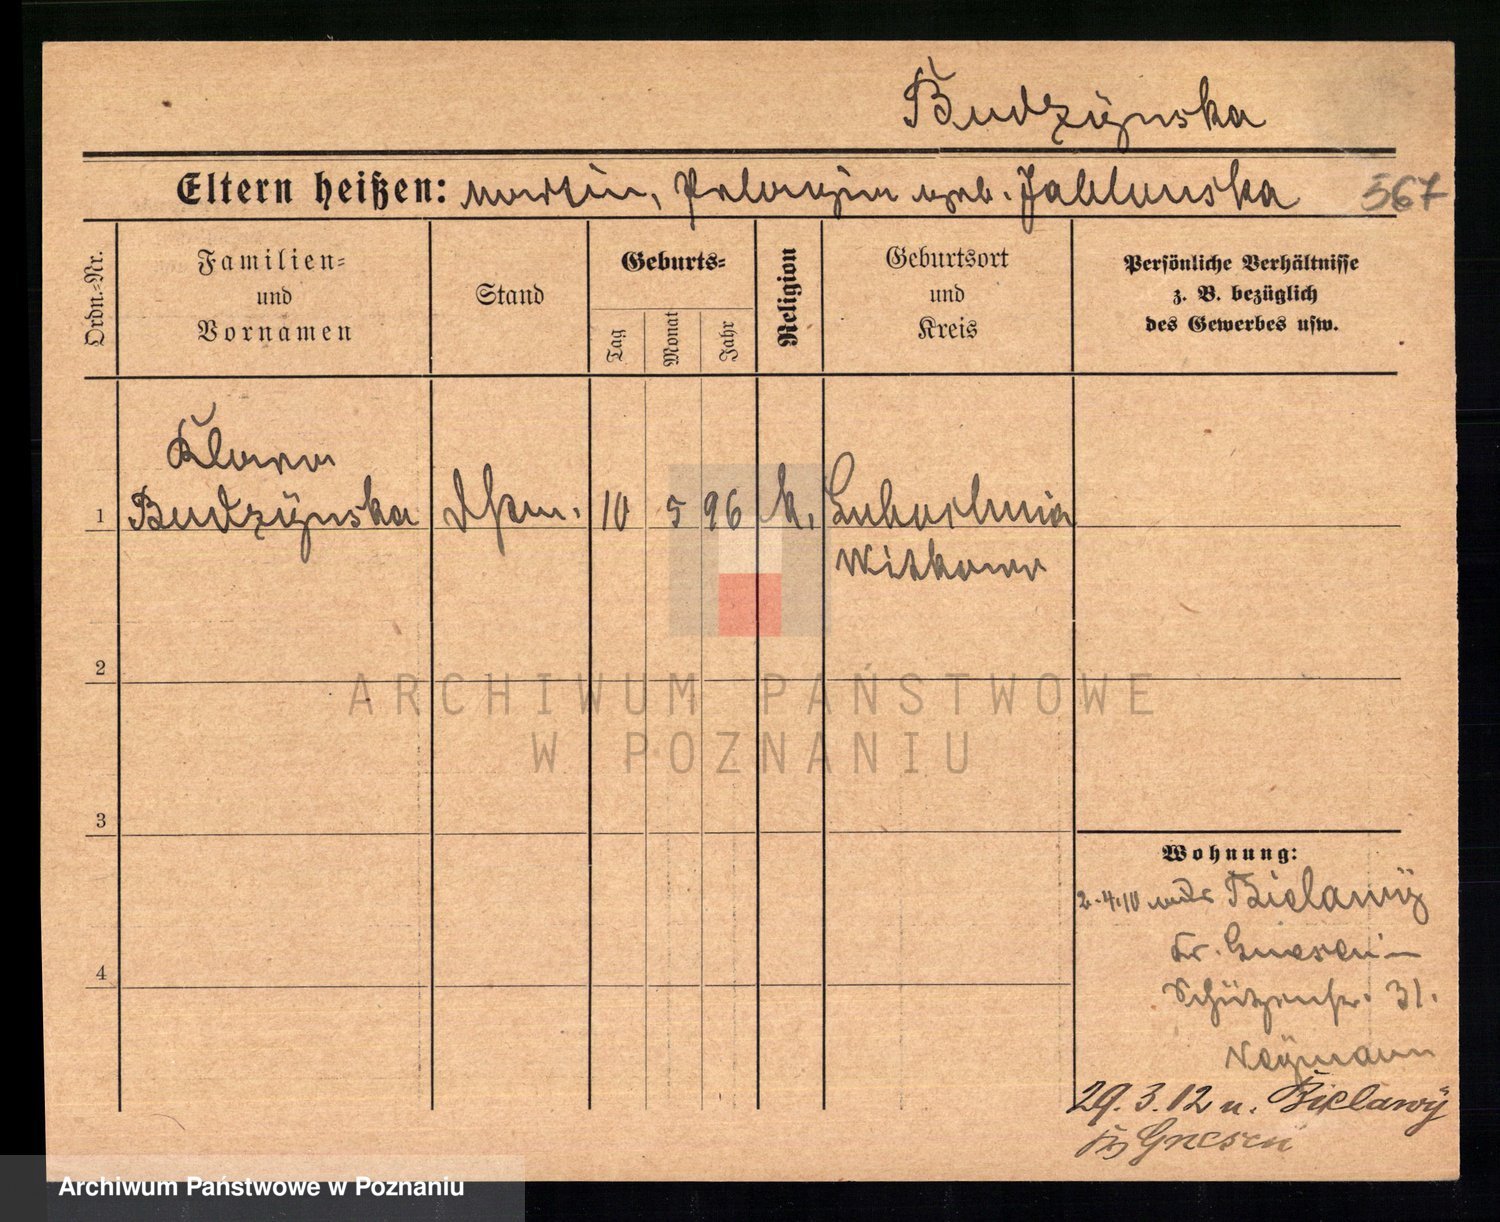 Budzÿnska
Eltern heißen: Martin, Pelagia geb. Jablonska 567
Ordn.-Nr.
Familien-
und
Vornamen
Stand
Geburts-
Tag
Monat
Jahr
Religion
Geburtsort
und
Kreis
Persönliche Verhältnisse
z. B. bezüglich
des Gewerbes usw.
Klara
1 Budzÿnska 10 5 96 k.
Witkowo
2
3
4
Wohnung:
2.4.10 aus Bielawÿ
Kr. Gnesen
Schützenstr. 31.
Neÿmann
29.3.12 n. Bielawÿ
Gnesen
ARCHIWUM PAŃSTWOWE
W POZNANIU
Archiwum Państwowe w Poznaniu